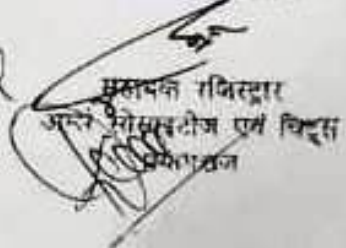 सहायक रजिस्ट्रार
फर्म्स सोसाइटीज एवं चिट्स
प्रयागराज